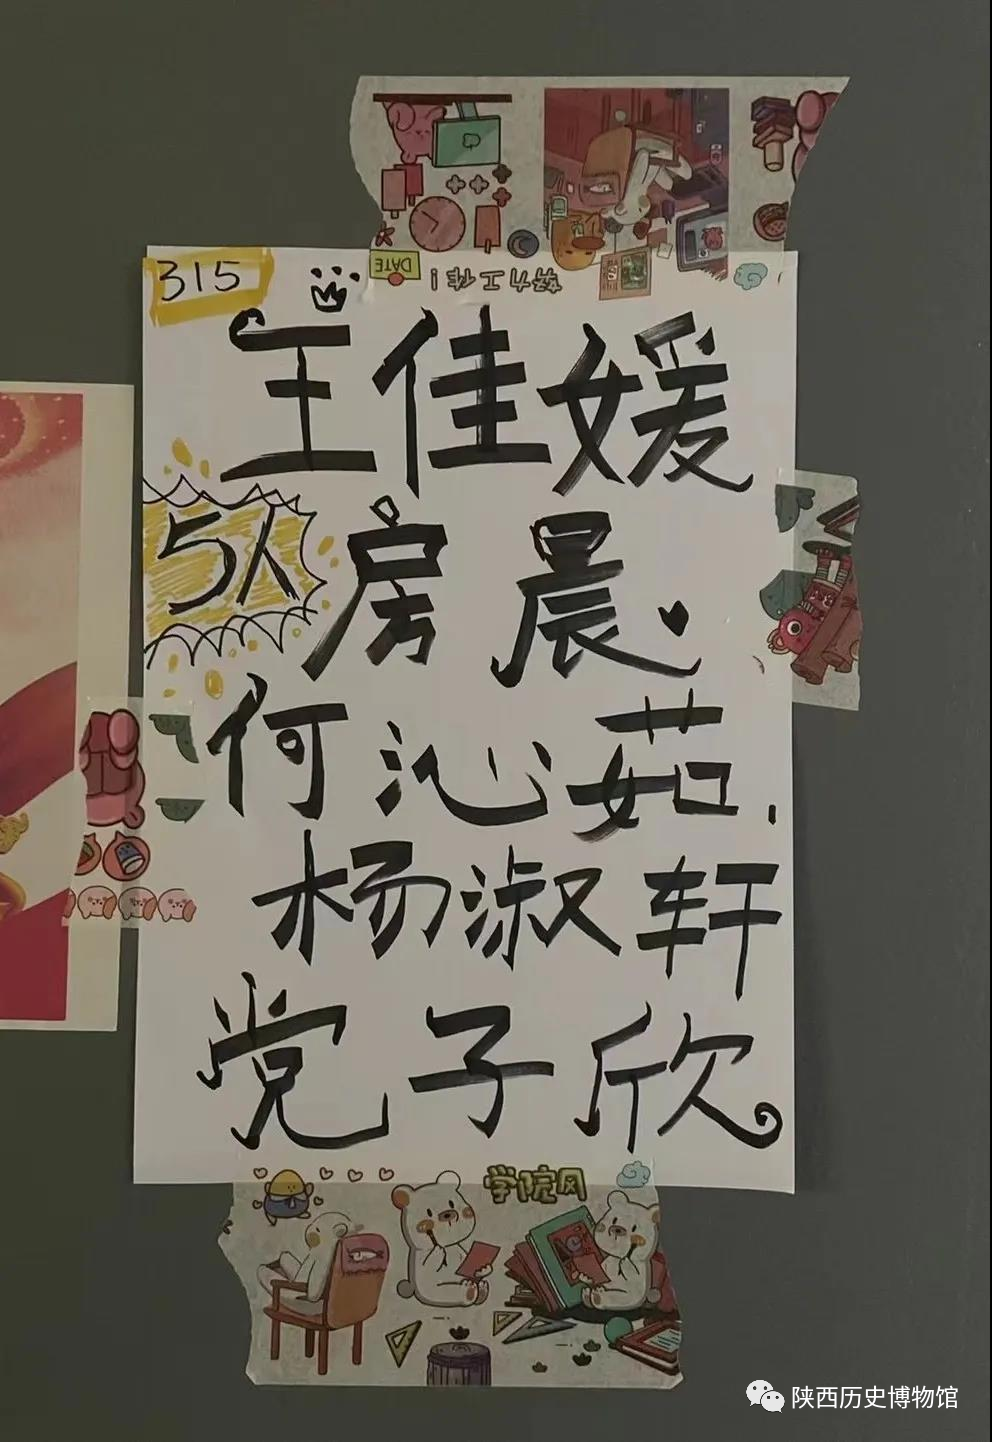 DATE
努力工作!
315
王佳媛
5人
房晨
何沁茹.
杨淑轩
党子欣
学院风
陕西历史博物馆